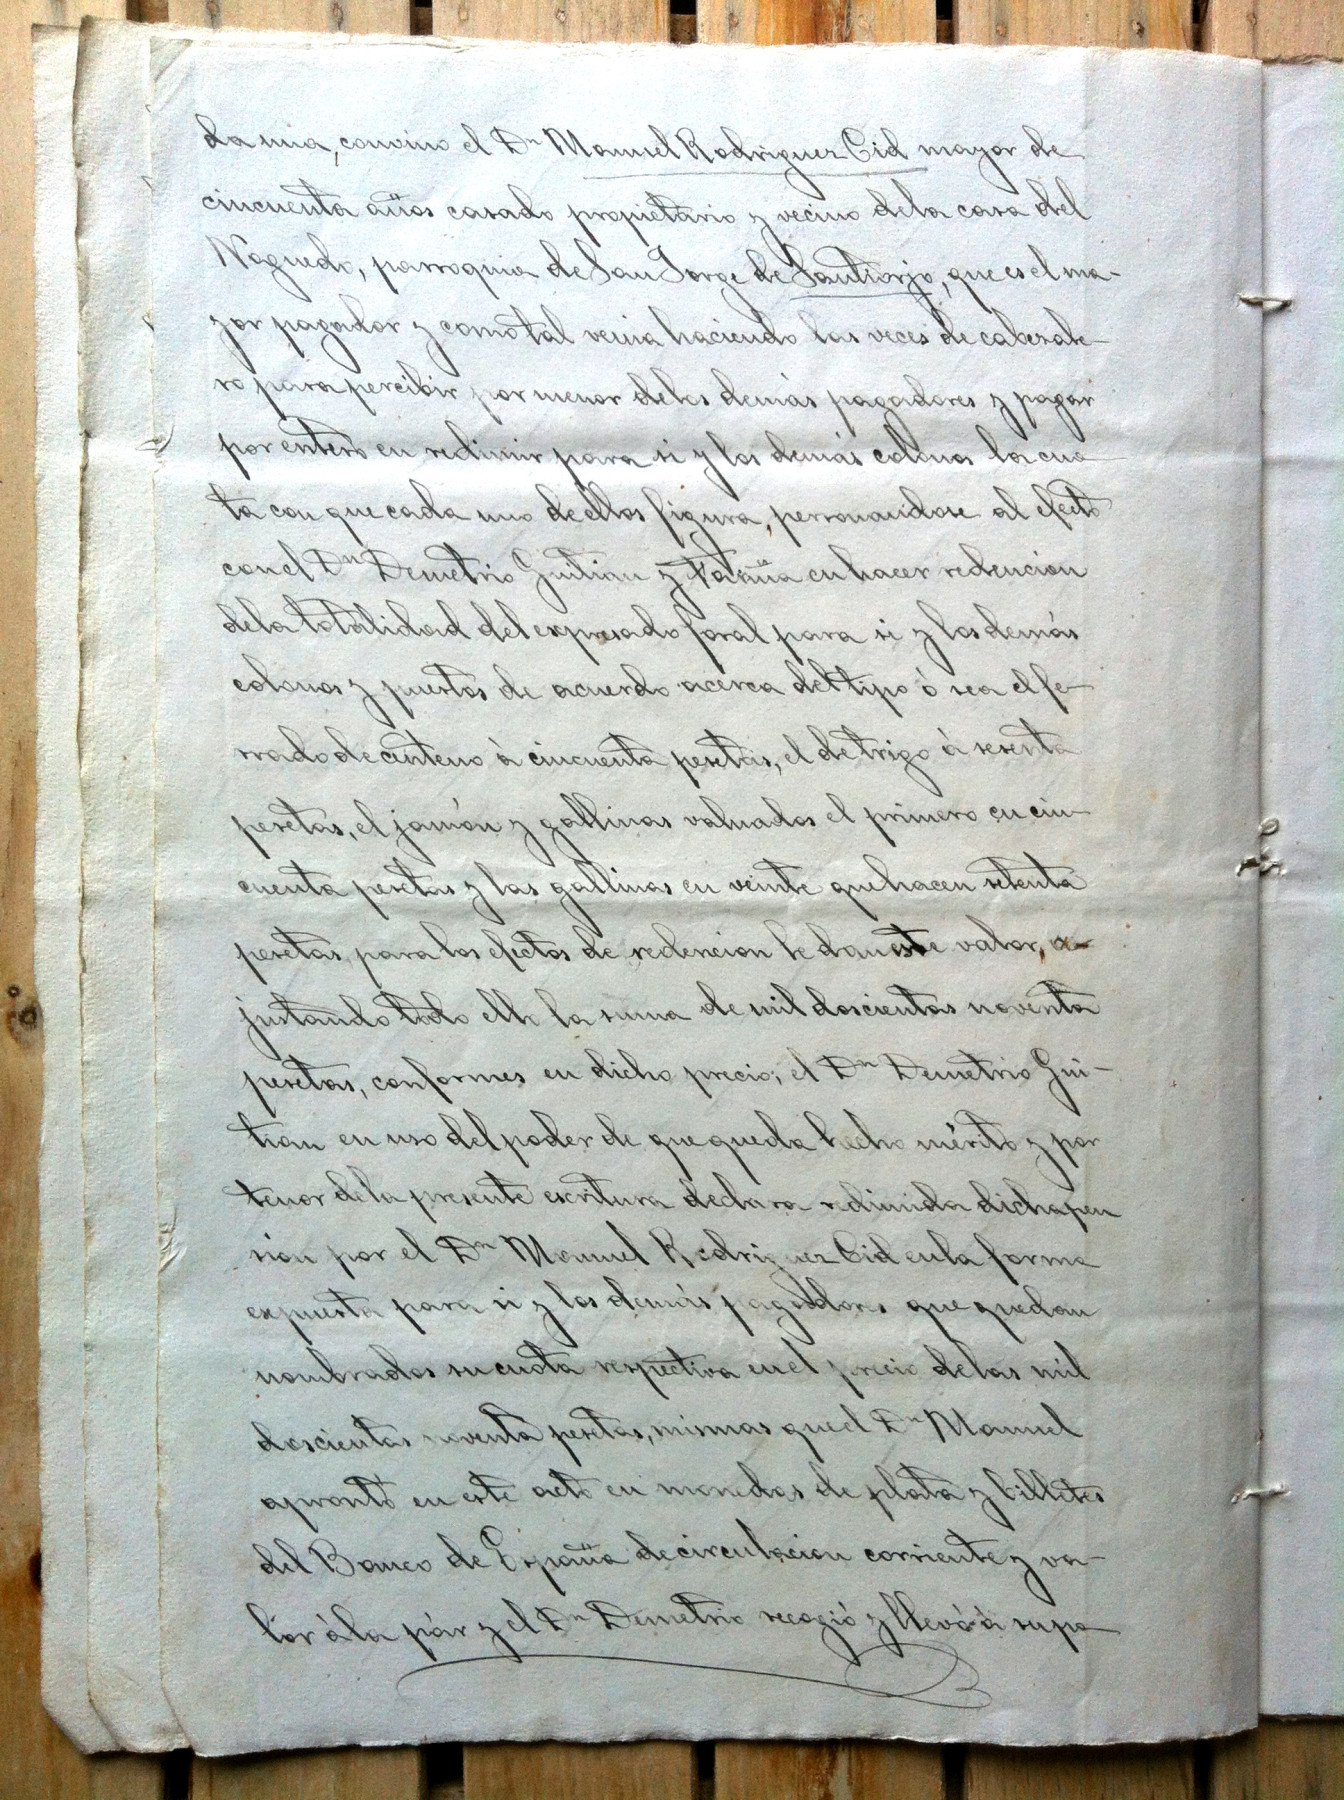 da una, convino el Dn Manuel Rodriguez Cid mayor de
cincuenta años casado propietario y vecino dela casa del
Noguedo, parroquia de San Jorge de Santiorjo, que es el ma-
yor pagador y como tal venia haciendo las veces de cabezale-
ro para percibir por menor delos demás pagadores y pagar
por entero en redimir para si y los demás colonos la cuo-
ta con que cada uno de ellos figura, personandose al efecto
con el Dn Demetrio Guitian y en hacer redencion
dela totalidad del expresado foral para si y los demás
colonos y puestos de acuerdo acerca del tipo ó sea el fe-
rrado de centeno à cincuenta pesetas, el de trigo à sesenta
pesetas, el jamón y gallinas valuados el primero en cin-
cuenta pesetas y las gallinas en veinte que hacen setenta
pesetas, para los efectos de redencion le dan este valor, a-
justando todo ello la suma de mil doscientas noventa
pesetas, conformes en dicho precio; el Dn Demetrio Gui-
tian en uso del poder de que queda hecho mérito y por
tenor dela presente escritura declara redimida dicha pen
sion por el Dn Manuel Rodriguez Cid en la forma
expuesta para si y los demás pagadores que quedan
nombrados su cuota respectiva en el precio delas mil
doscientas noventa pesetas, mismas que el Dn Manuel
aprontó en este acto en monedas de plata y billetes
del Banco de España de circulacion corriente y va-
lor à la pár y el Dn Demetrio recogió y llevó à su po